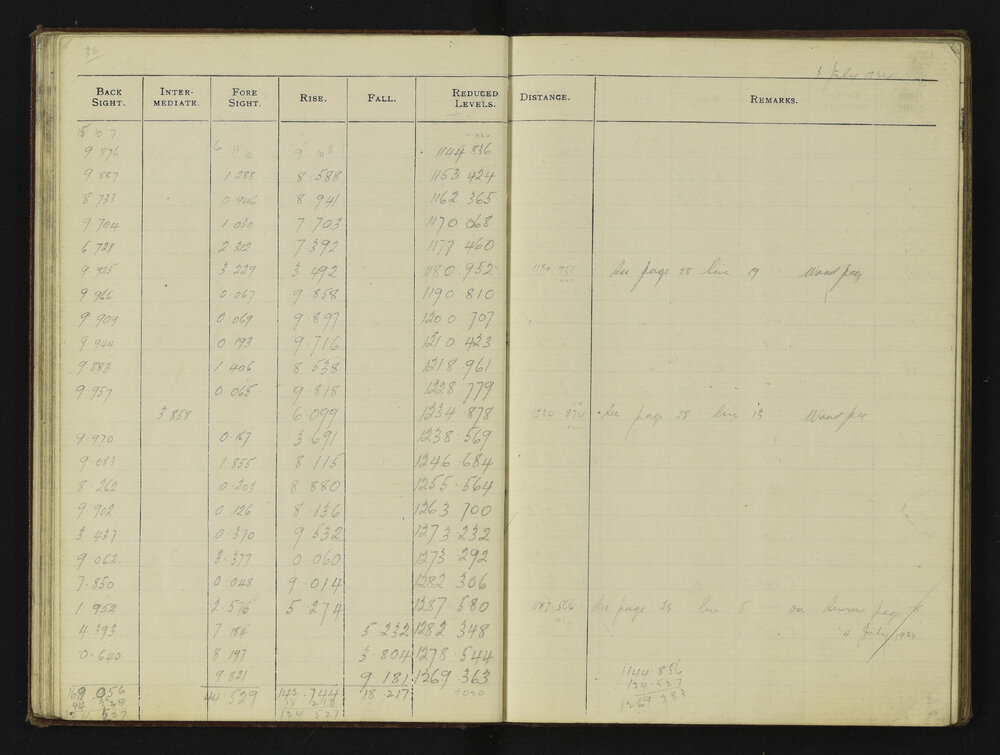 3 July 1924
BACK SIGHT. INTER-MEDIATE. FORE SIGHT. RISE. FALL. REDUCED LEVELS. DISTANCE. REMARKS.
9 876 1144 836
9 887 1 288 8 588 1153 424
8 733 0 946 8 941 1162 365
9 704 1 030 7 703 1170 068
6 721 2 312 7 392 1177 460
9 925 3 229 3 492 1180.952 1180 951 See page 28 line 19 Wood peg
9 966 0 067 9 858 1190 810
9 909 0 069 9.897 1200 707
9 944 0 193 9.716 1210 423
9.883 1 406 8.538 1218 961
9.957 0 065 9 818 1228 779
3 858 6.099 1234 878 1234 874 See page 28 line 13 Wood peg
9.970 0 167 3 691 1238.569
9.083 1 855 8 115 1246 684
8.262 0.203 8 880 1255.564
9.902 0.126 8 136 1263 700
3.437 0.370 9 532 1273 232
9 062 3.377 0 060 1273 292
7.850 0 048 9 014 1282 306
1 952 2.576 5 274 1287.580 See page 28 line 5 on Survey peg
4.393 7 184 5 232 1282 348 4 July
0.640 8 197 3.804 1278 544
9 821 9 181 1269 363
169 056 44.529 142.744 18.217
44 529 18 217 1144.836
124 527 124 527 124.527
1269 383